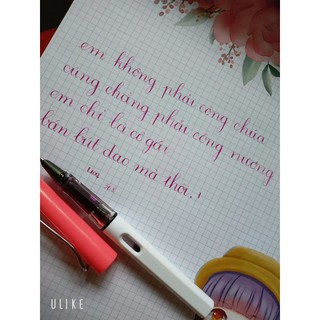 em không phải công chúa
cũng chẳng phải công nương
em chỉ là cô gái
bán bút dạo mà thôi. !
ULIKE